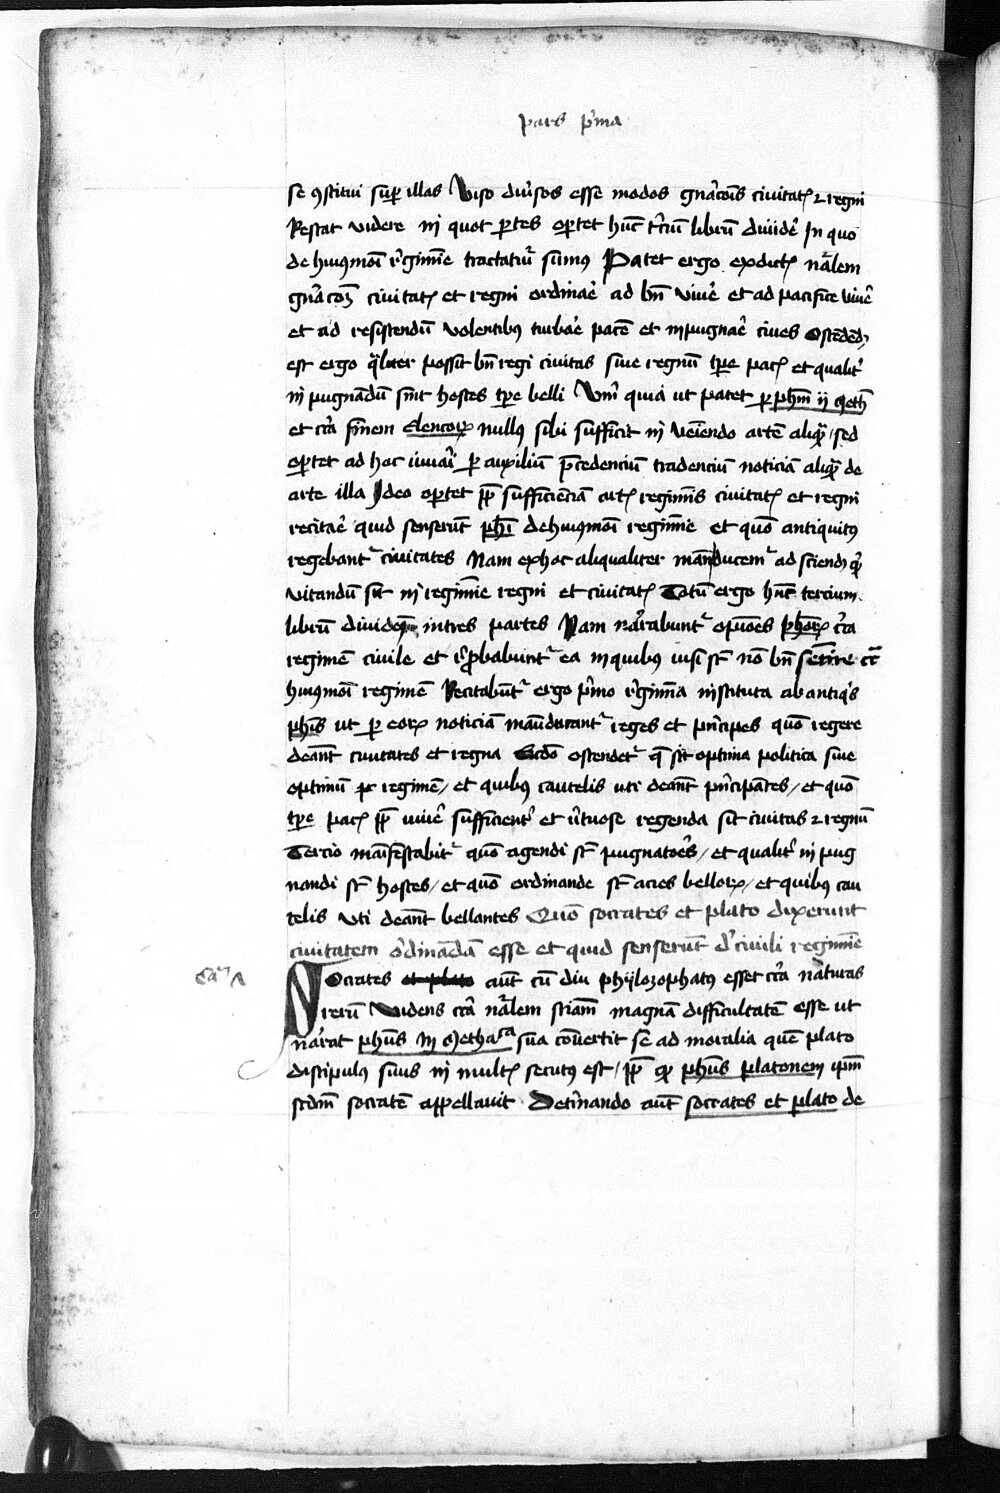 pars p'ma
se ꝯstitui suꝑ illas Viso diu'sos esse modos gn̄acōis ciuitatꝭ ⁊ regni
Restat videre in quot ꝑtes oꝑtet hūc t'ciū librū diuide' In quo
de huiꝯmōi r'gimīe tractaturꝰ sumꝰ Patet ergo ex dictꝭ nālem
gn̄acōꝫ ciuitatꝭ et regni ordinae' ad bn̄ viue' et ad pacifice viue'
et ad resistendū volentibꝰ turbae' pacē et inpugnae' ciues Ostēdēdꝫ
est ergo qͣliter possit bn̄ regi ciuitas siue regnū tꝑe pacꝭ et qualit'
inpugnādū sint hostes tꝑe belli Vn̄ quia ut patet ꝑ ph̄m ij Meth
et c'ca finem elencoꝝ nullꝰ sibi sufficit in veīendo artē aliqͣ / sed
oꝑtet ad hoc iuuari ꝑ auxiliū p̄cedenciū tradenciū noticiā aliqͣ de
arte illa Ideo oꝑtet ꝓp̄ sufficienciā artꝭ regimīs ciuitatꝭ et regni
recitae' quid senserūt ph̄i de huiꝯmōi regimīe et quō antiquitꝰ
regebantᷣ ciuitates Nam ex hoc aliqualiter manducemᷣ ad sciendꝫ qͥ
vitandū sit in regimīe regni et ciuitatꝭ Totū ergo hūc tercium
librū diuidemꝰ in tres partes Nam narrabuntᷣ opiōes ph̄oꝝ c'ca
regimē ciuile et r'ꝓbabuntᷣ ea in quibꝰ uisi st̄ nō bn̄ sentire c'c̄
huiꝯmōi regimē Recitabūtᷣ ergo p'mo r'gimīa instituta ab antiqͥs
ph̄is ut ꝑ eoꝝ noticiā manducantᷣ reges et p'ncipes quō regere
debeāt ciuitates et regna Scdo ostendetᷣ q̄ sit optima politica siue
optimū regimē / et quibꝰ cautelis uti debeāt p'ncipātes / et quō
tꝑe pacꝭ ꝓp̄ viue' sufficient' et v'tuose regenda sit ciuitas ⁊ regnū
Tercio manifestabitᷣ quō agendi st̄ pugnatoēs / et qualit' inpug
nandi st̄ hostes / et quō ordinande st̄ acies belloꝝ / et quibꝰ cau
telis vti debeāt bellantes Quō socrates et plato dixerunt
ciuitatem ordinādā esse et quid senserūt d' ciuili regimīe
Socrates et plato aut̄ cū diu phylozophatꝰ esset c'ca naturas
rerū Videns c'ca nālem sciam̄ magnā difficultatē esse ut
narrat ph̄us in Metha'ca sua cōuertit se ad moralia quē plato
discipulꝰ suus in multꝭ secutꝰ est / ꝓp̄ qͩ ph̄us platonem ip̄m
scdm̄ socratē appellauit Det'mando aut̄ socrates et plato de